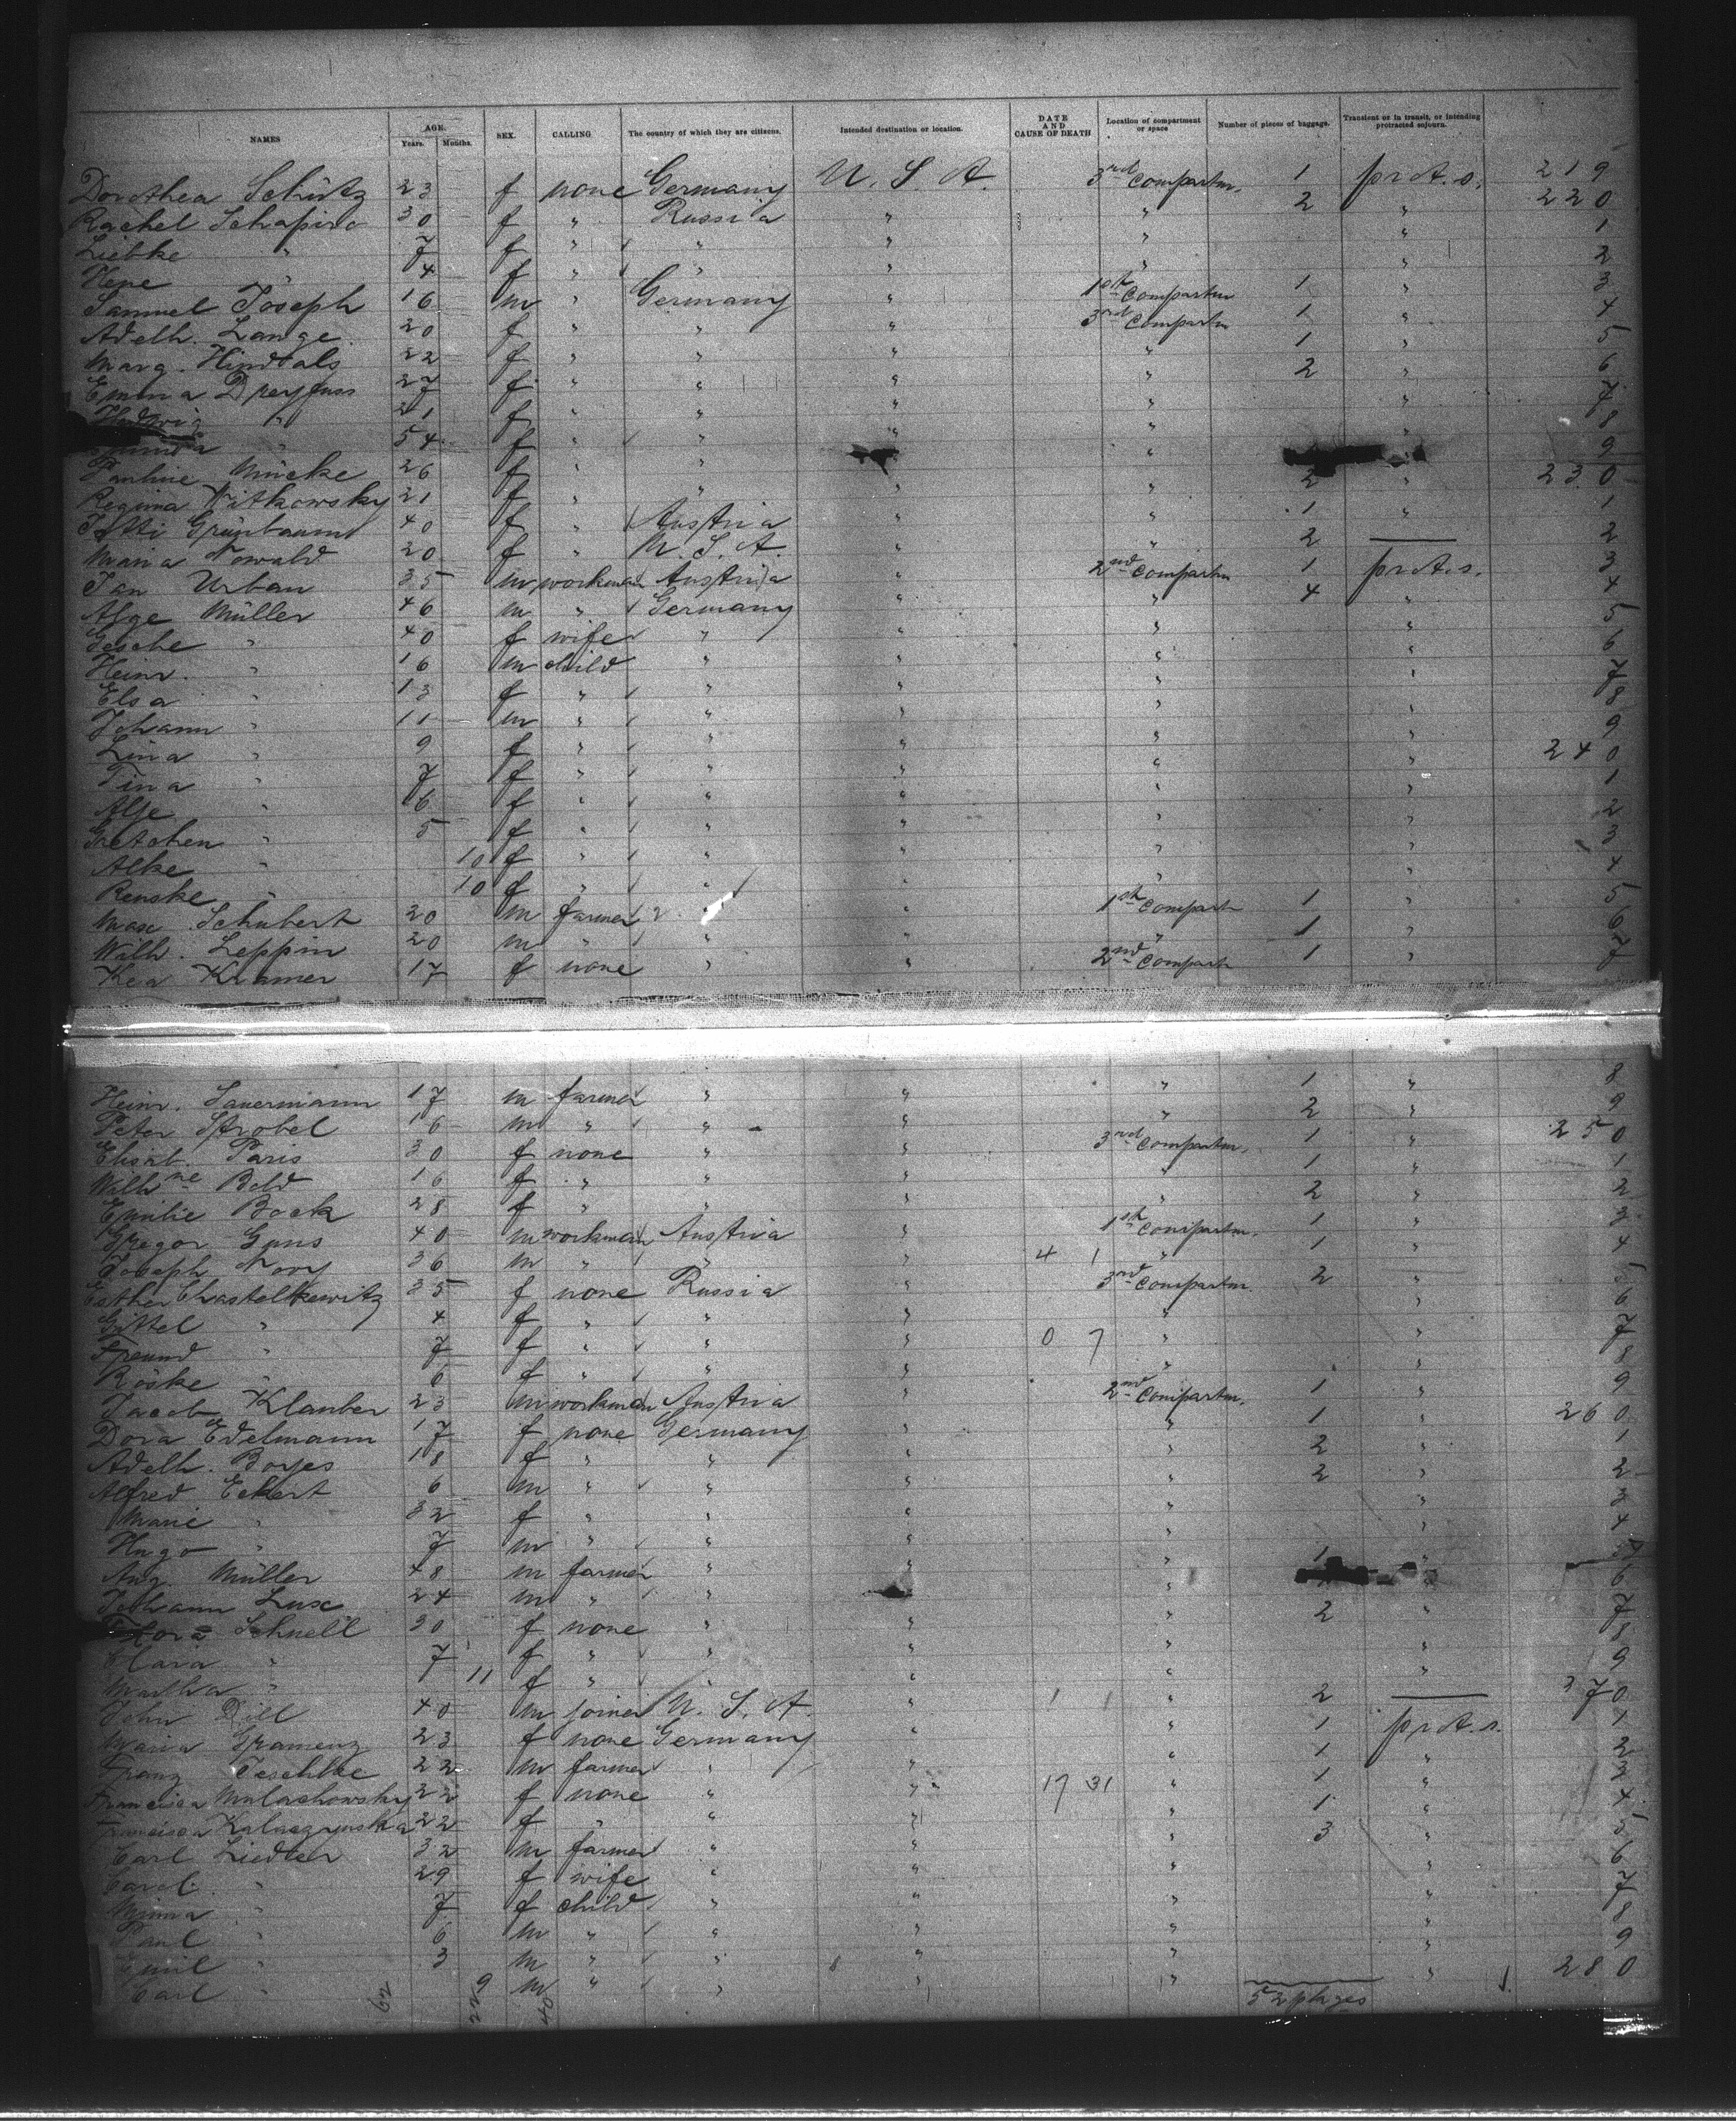 NAMES AGE. Years. Months. SEX. CALLING The country of which they are citizens. Intended destination or location. DATE AND CAUSE OF DEATH Location of compartment or space Number of pieces of baggage. Transient or in transit, or intending protracted sojourn.
Dorothea Schütz 23 f none Germany U. S. A. 3rd Compartm. 1 pr. A. s. 219
Rachel Schapiro 30 f " Russia " " 2 " 220
Liebke " 7 f " " " " " 1
Hene " 4 f " " " " " 2
Samuel Joseph 16 m " Germany " 1st Compartm 1 " 3
Adelh. Lange 20 f " " " 3rd Compartm 1 " 4
Marg. 22 f " " " " 1 " 5
Emma Dreyfuss 27 f " " " " 2 " 6
Hedwig " 21 f " " " " " 7
" 54 f " " " " " 8
Pauline Mücke 26 f " " " " " 9
Regina Witkowsky 21 f " " " " 2 " 230
Grünbaum 40 f " Austria " " 1 " 1
Maria Nowald 20 f " U. S. A. " " 2 — 2
Jan Urban 35 m workman Austria " 2nd Compartm 1 pr. A. s. 3
Müller 46 m " Germany " " 4 " 4
Gesche " 40 f wife " " " " 5
Heinr. " 16 m child " " " " 6
Elsa " 13 f " " " " " 7
Johann " 11 m " " " " " 8
Lina " 9 f " " " " " 9
Tina " 7 f " " " " " 240
" 6 f " " " " " 1
Gretchen " 5 f " " " " " 2
Alke " 10 f " " " " " 3
Renske " 10 f " " " " " 4
Max Schubert 20 m farmer " " 1st Compart 1 " 5
Wilh. Leppin 20 m " " " " 1 " 6
Kea Kramer 17 f none " " 2nd Compart 1 " 7
Heinr. Sauermann 17 m farmer " " " 1 " 8
Peter Strobel 16 m " " " " 2 " 9
Elisab. Paris 30 f none " " 3rd Compartm. 1 " 250
Wilhne Bold 16 f " " " " 1 " 1
Emilie Bock 28 f " " " " 2 " 2
Gregor Guns 40 m workman Austria " 1st Compartm. 1 " 3
Joseph Novy 36 m " " " 4 1 " 1 " 4
Esther Chastelkewitz 35 f none Russia " 3rd Compartm. 2 " 5
Gittel " 4 f " " " " " 6
Freund " 7 f " " " 0 7 " " 7
Röske " 6 f " " " " " 8
Jacob Klauber 23 m workman Austria " 2nd Compartm. 1 " 9
Dora Edelmann 17 f none Germany " " 1 " 260
Adelh. Boyes 18 f " " " " 2 " 1
Alfred Eckert 6 m " " " " 2 " 2
Marie " 32 f " " " " " 3
Hugo " 7 m " " " " " 4
Aug. Müller 48 m farmer " " " 1 " 5
Johann Lux 24 m " " " " " 6
Schnell 30 f none " " " 2 " 7
Clara " 7 f " " " " " 8
Martha " 11 f " " " " " 9
John Dill 40 m joiner U. S. A. " 1 1 " 2 — 270
Maria Gramenz 23 f none Germany " " 1 pr. A. s. 1
Franz Teschke 22 m farmer " " " 1 " 2
Francisca Malachowsky 22 f none " " 17 31 " 1 " 3
Francisca 22 f " " " " 1 " 4
Carl Liedtke 32 m farmer " " " 3 " 5
Carol. " 29 f wife " " " " 6
Minna " 7 f child " " " " 7
Paul " 6 m " " " " " 8
Emil " 3 m " " 8 " " " 9
Carl " 9 m " " " " " 280
62 22 40 52 plages